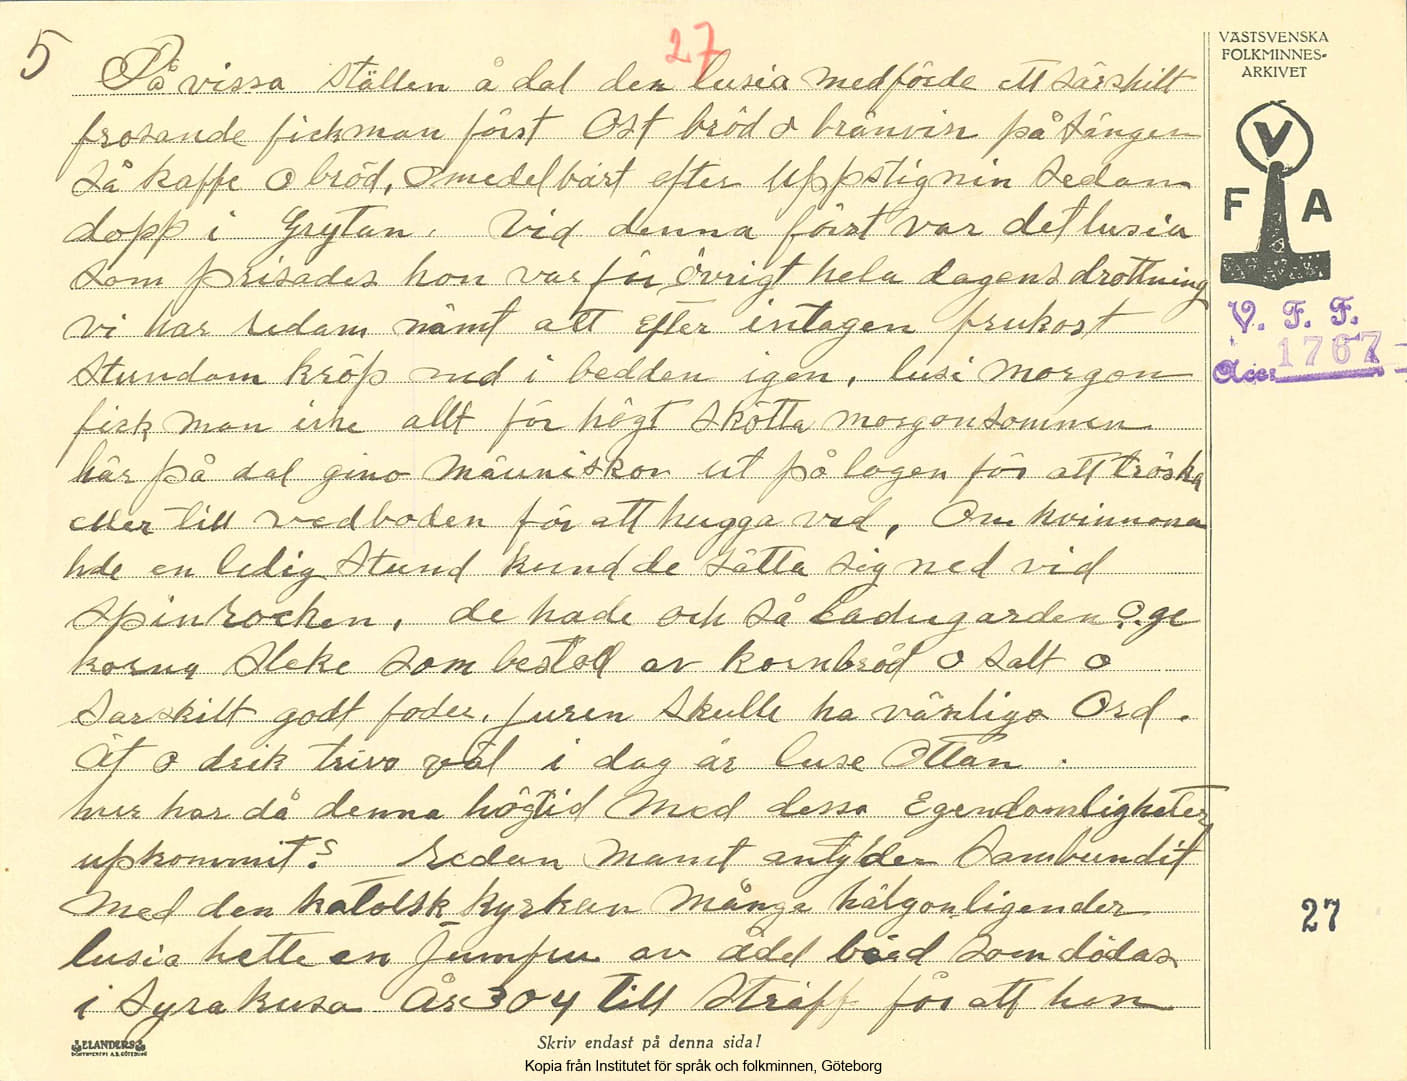 5
27
På vissa ställen å dal den lusia medförde ett särskilt
frosande fick man först Ost bröd o bränvin på sängen
så kaffe o bröd, omedelbart efter uppstignin sedan
dopp i Grytan. Vid denna först var det lusia
som prisades hon var för övrigt hela dagens drottning
vi har redan nämt att efter intagen frukost
stundom kröp ned i bedden igen, lusi morgon
fick man icke allt för högt skötta morgonsommen
här på dal gino människor ut på logen för att tröska
eller till vedboden för att hugga ved, Om kvinnona
hde en ledig stund kundde sätta sig ned vid
spinrocken, de hade och så Ladugarden o. ge
korna sleke som bestod av kornbröd o salt o
sarskilt godt foder, juren skulle ha vänliga Ord.
Ät o drik trivs väl i dag är luse Ottan.
hur har då denna högtid med dessa Egendomligheter
upkommit? redan namt antyder Sambundit
med den katolsk kyrkan många hälgonligender
lusia hette en jumfru av ädel börd som dödas
i Syrakusa År 304 till straff för att hon
VÄSTSVENSKA
FOLKMINNES-
ARKIVET
V
F A
V. F. F.
Acc: 1767
27
ELANDERS
GÖTEBORG
Skriv endast på denna sida!
Kopia från Institutet för språk och folkminnen, Göteborg